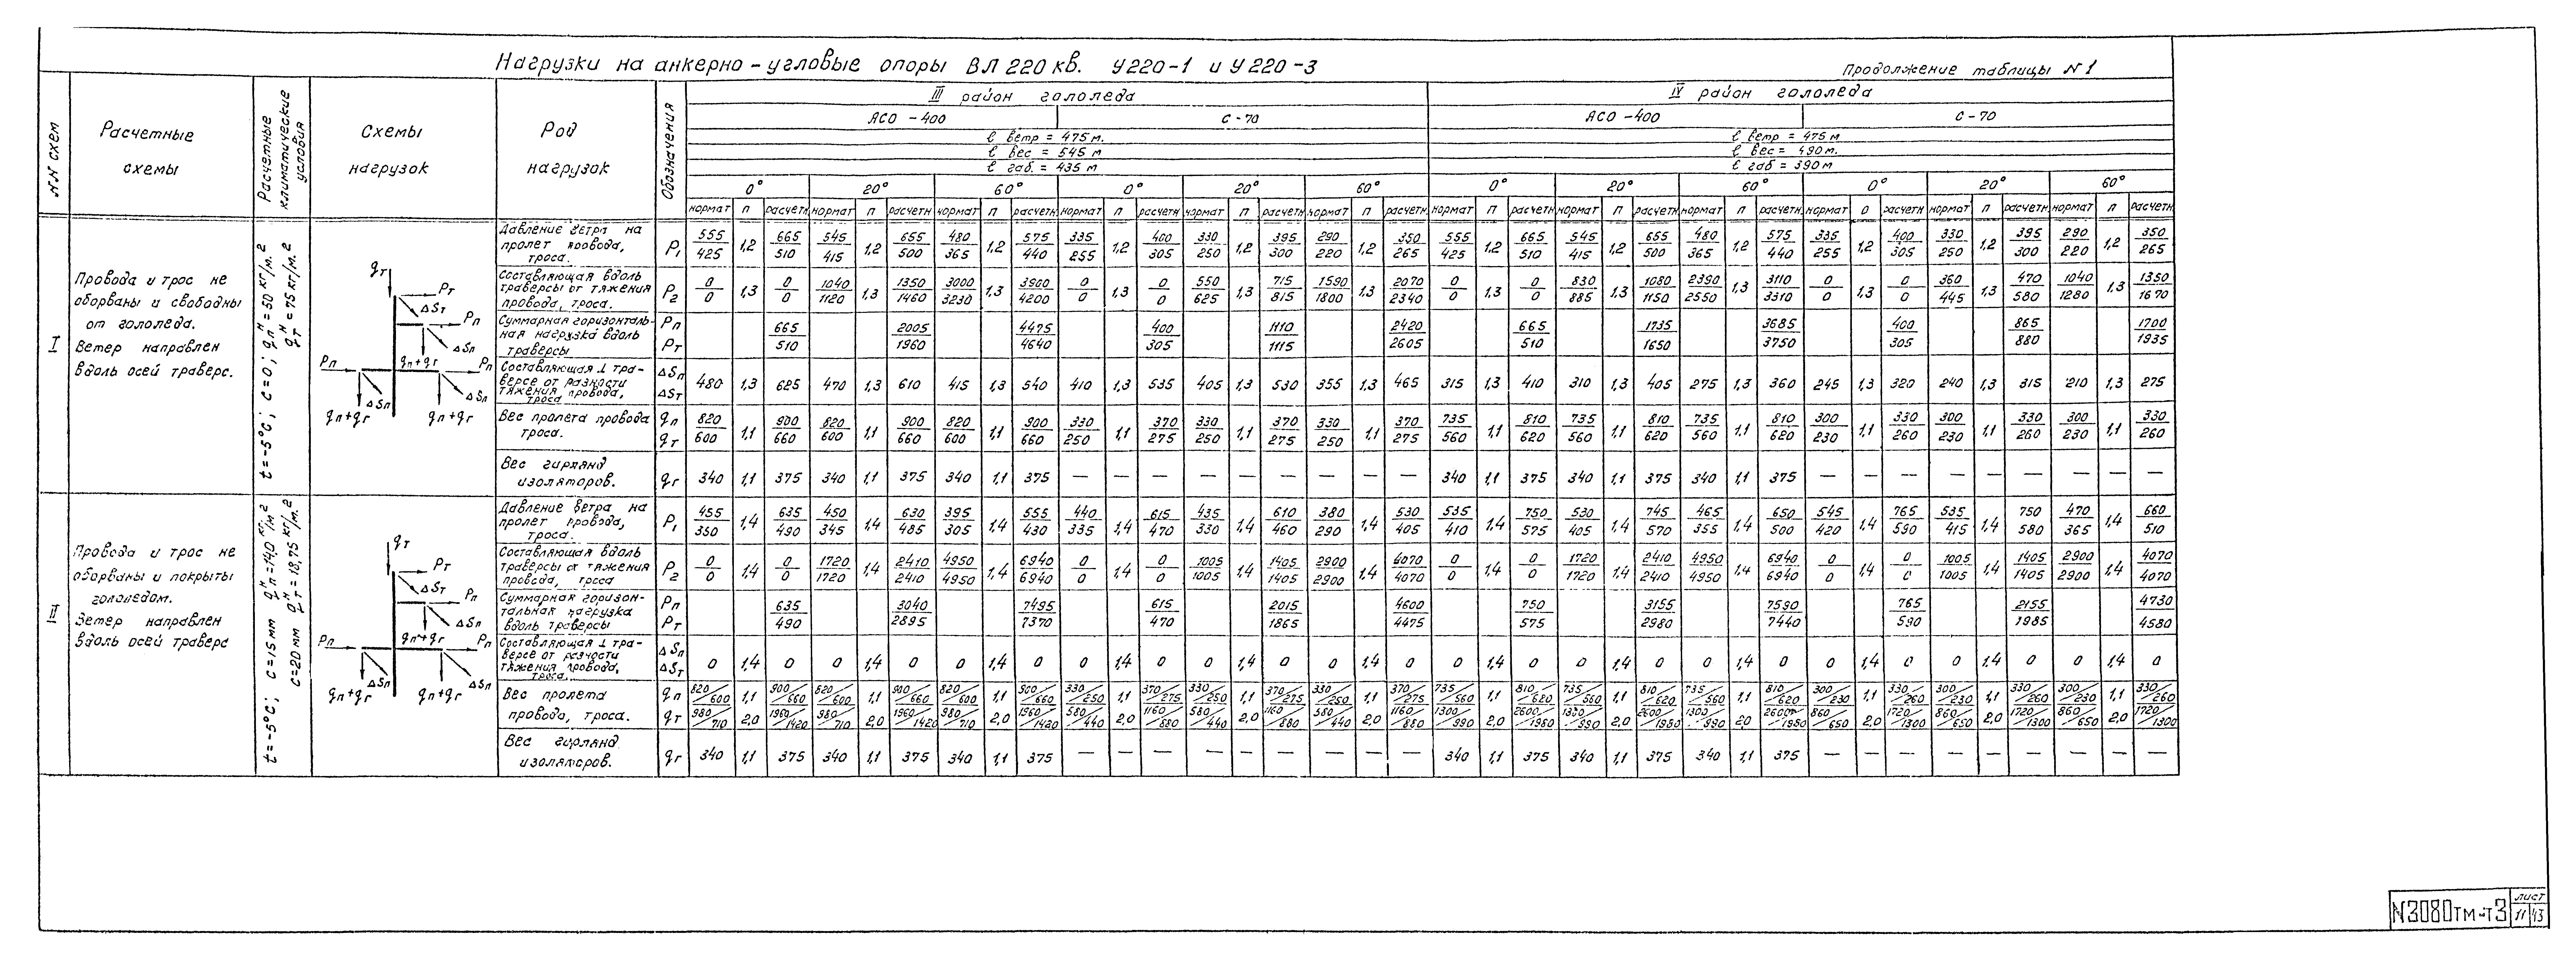 Нагрузки на анкерно-угловые опоры ВЛ 220 кв. У220-1 и У220-3
Продолжение таблицы N1
NN схем
Расчетные схемы
Расчетные климатические условия
Схемы нагрузок
Род нагрузок
Обозначения
III район гололеда
IV район гололеда
АСО-400 С-70 АСО-400 С-70
l ветр = 475 м. l ветр = 475 м
l вес = 545 м l вес = 490 м.
l габ. = 435 м l габ = 390 м
0° 20° 60° 0° 20° 60° 0° 20° 60° 0° 20° 60°
нормат п расчетн нормат п расчетн нормат п расчетн нормат п расчетн нормат п расчетн нормат п расчетн нормат п расчетн нормат п расчетн нормат п расчетн нормат п расчетн нормат п расчетн нормат п расчетн
I
Провода и трос не
оборваны и свободны
от гололеда.
Ветер направлен
вдоль осей траверс.
t=-5°C; c=0; qпᴴ=50 кг/м.2
qтᴴ=75 кг/м.2
qт Pт ΔSт Pп ΔSп Pп qп+qг Pп ΔSп ΔSп qп+qг qп+qг
Давление ветра на пролет провода, троса. P1 555/425 1,2 665/510 545/415 1,2 655/500 480/365 1,2 575/440 335/255 1,2 400/305 330/250 1,2 395/300 290/220 1,2 350/265 555/425 1,2 665/510 545/415 1,2 655/500 480/365 1,2 575/440 335/255 1,2 400/305 330/250 1,2 395/300 290/220 1,2 350/265
Составляющая вдоль траверсы от тяжения провода, троса. P2 0/0 1,3 0/0 1040/1120 1,3 1350/1460 3000/3230 1,3 3900/4200 0/0 1,3 0/0 550/625 1,3 715/815 1590/1800 1,3 2070/2340 0/0 1,3 0/0 830/885 1,3 1080/1150 2390/2550 1,3 3110/3310 0/0 1,3 0/0 360/445 1,3 470/580 1040/1280 1,3 1350/1670
Суммарная горизонтальная нагрузка вдоль траверсы Pп Pт 665/510 2005/1960 4475/4640 400/305 1110/1115 2420/2605 665/510 1735/1650 3685/3750 400/305 865/880 1700/1935
Составляющая ⊥ траверсе от разности тяжения провода, троса ΔSп ΔSт 480 1,3 625 470 1,3 610 415 1,3 540 410 1,3 535 405 1,3 530 355 1,3 465 315 1,3 410 310 1,3 405 275 1,3 360 245 1,3 320 240 1,3 315 210 1,3 275
Вес пролета провода троса. qп qт 820/600 1,1 900/660 820/600 1,1 900/660 820/600 1,1 900/660 330/250 1,1 370/275 330/250 1,1 370/275 330/250 1,1 370/275 735/560 1,1 810/620 735/560 1,1 810/620 735/560 1,1 810/620 300/230 1,1 330/260 300/230 1,1 330/260 300/230 1,1 330/260
Вес гирлянд изоляторов. qг 340 1,1 375 340 1,1 375 340 1,1 375 — — — — — — — — — 340 1,1 375 340 1,1 375 340 1,1 375 — — — — — — — — —
II
Провода и трос не
оборваны и покрыты
гололедом.
Ветер направлен
вдоль осей траверс
t=-5°C; c=15мм qпᴴ=14,0 кг/м2
c=20мм qтᴴ=18,75 кг/м.2
qт Pт ΔSт Pп ΔSп Pп qп+qг Pп ΔSп ΔSп qп+qг qп+qг
Давление ветра на пролет провода, троса. P1 455/350 1,4 635/490 450/345 1,4 630/485 395/305 1,4 555/430 440/335 1,4 615/470 435/330 1,4 610/460 380/290 1,4 530/405 535/410 1,4 750/575 530/405 1,4 745/570 465/355 1,4 650/500 545/420 1,4 765/590 535/415 1,4 750/580 470/365 1,4 660/510
Составляющая вдоль траверсы от тяжения провода, троса P2 0/0 1,4 0/0 1720/1720 1,4 2410/2410 4950/4950 1,4 6940/6940 0/0 1,4 0/0 1005/1005 1,4 1405/1405 2900/2900 1,4 4070/4070 0/0 1,4 0/0 1720/1720 1,4 2410/2410 4950/4950 1,4 6940/6940 0/0 1,4 0/0 1005/1005 1,4 1405/1405 2900/2900 1,4 4070/4070
Суммарная горизонтальная нагрузка вдоль траверсы Pп Pт 635/490 3040/2895 7495/7370 615/470 2015/1865 4600/4475 750/575 3155/2980 7590/7440 765/590 2155/1985 4730/4580
Составляющая ⊥ траверсе от разности тяжения провода, троса ΔSп ΔSт 0 1,4 0 0 1,4 0 0 1,4 0 0 1,4 0 0 1,4 0 0 1,4 0 0 1,4 0 0 1,4 0 0 1,4 0 0 1,4 0 0 1,4 0 0 1,4 0
Вес пролета провода, троса. qп 820/600 1,1 900/660 820/600 1,1 900/660 820/600 1,1 900/660 330/250 1,1 370/275 330/250 1,1 370/275 330/250 1,1 370/275 735/560 1,1 810/620 735/560 1,1 810/620 735/560 1,1 810/620 300/230 1,1 330/260 300/230 1,1 330/260 300/230 1,1 330/260
qт 980/710 2,0 1960/1420 980/710 2,0 1960/1420 980/710 2,0 1960/1420 580/440 2,0 1160/880 580/440 2,0 1160/880 580/440 2,0 1160/880 1300/990 2,0 2600/1980 1300/990 2,0 2600/1980 1300/990 2,0 2600/1980 860/650 2,0 1720/1300 860/650 2,0 1720/1300 860/650 2,0 1720/1300
Вес гирлянд изоляторов. qг 340 1,1 375 340 1,1 375 340 1,1 375 — — — — — — — — — 340 1,1 375 340 1,1 375 340 1,1 375 — — — — — — — — —
N3080тм-т3
лист
11 43